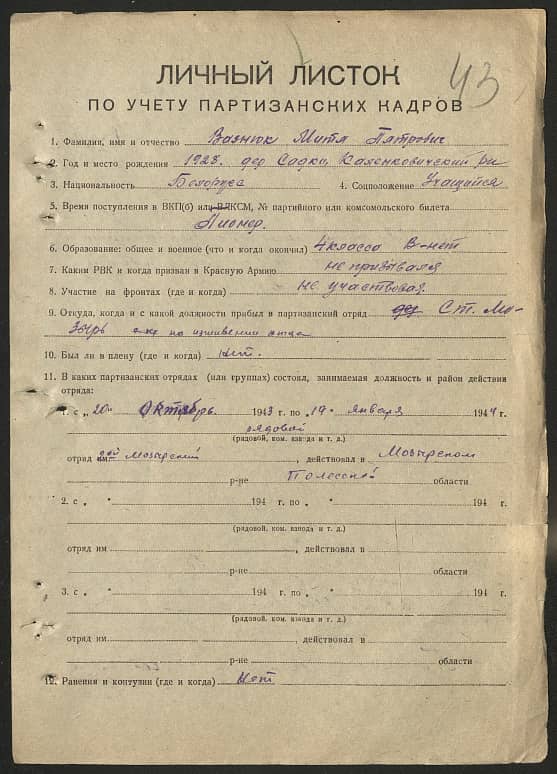 43
ЛИЧНЫЙ ЛИСТОК
ПО УЧЕТУ ПАРТИЗАНСКИХ КАДРОВ
1. Фамилия, имя и отчество Вазнюк Митя Пятрович
2. Год и место рождения 1928. дер Садки, Каленковичский
3. Национальность Белорус 4. Соцположение Учащийся
5. Время поступления в ВКП(б) или ВЛКСМ, № партийного или комсомольского билета
Пионер.
6. Образование: общее и военное (что и когда окончил) 4 класса В-нет
7. Каким РВК и когда призван в Красную Армию не призывался
8. Участие на фронтах (где и когда) не участвовал.
9. Откуда, когда и с какой должности прибыл в партизанский отряд Ст. Мо-
зырь на иждивении отца
10. Был ли в плену (где и когда) нет.
11. В каких партизанских отрядах (или группах) состоял, занимаемая должность и район действия
отряда:
1. с „20" Октябрь 1943 г. по „19" января 1944 г.
рядовой
(рядовой, ком. взвода и т. д.)
отряд им Мозырский, действовал в Мозырском
р-не Полесской области
2. с „ " 194 г. по „ " 194 г.
(рядовой, ком. взвода и т. д.)
отряд им , действовал в
р-не области
3. с „ " 194 г. по „ " 194 г.
(рядовой, ком. взвода и т. д.)
отряд им , действовал в
р-не области
12. Ранения и контузии (где и когда) Нет